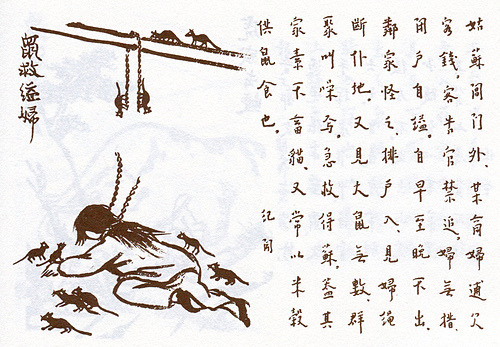 姑蘇閶門外、某商婦逋欠
客錢。客告官禁追、婦無措、
閉戶自縊。自早至晚不出、
鄰家怪之、排戶入、見婦繩
斷仆地。又見大鼠無數、群
聚叫噪焉。急救得蘇。蓋其
家素不畜貓、又常以米穀
供鼠食也。 紀聞
鼠救縊婦